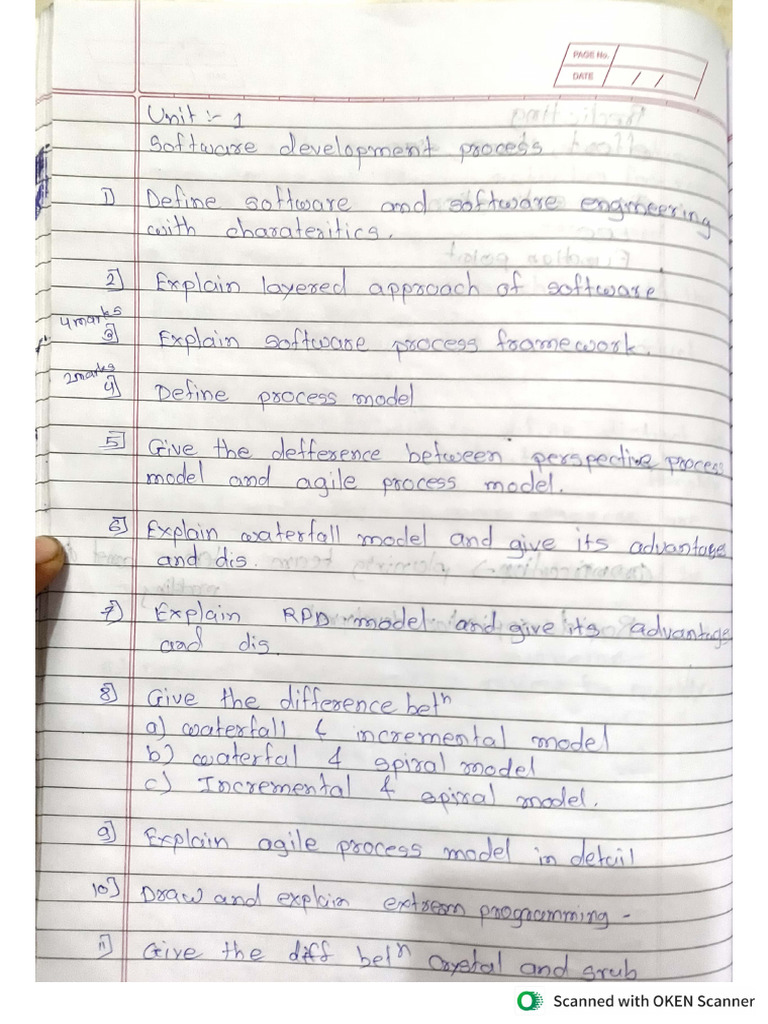 PAGE No.
DATE / /
Unit :- 1
Software development process
1) Define software and software engineering
with charateritics.
2) Explain layered approach of software
4 marks
3) Explain software process framework.
2 marks
4) Define process model
5) Give the defference between perspective process
model and agile process model.
6) Explain waterfall model and give its advantage
and dis.
7) Explain RPD model and give its advantage
and dis.
8) Give the difference betn
a) waterfall & incremental model
b) waterfal & spiral model
c) Incremental & spiral model.
9) Explain agile process model in detail
10) Draw and explain extream programming -
11) Give the diff betn crystal and srub
Scanned with OKEN Scanner